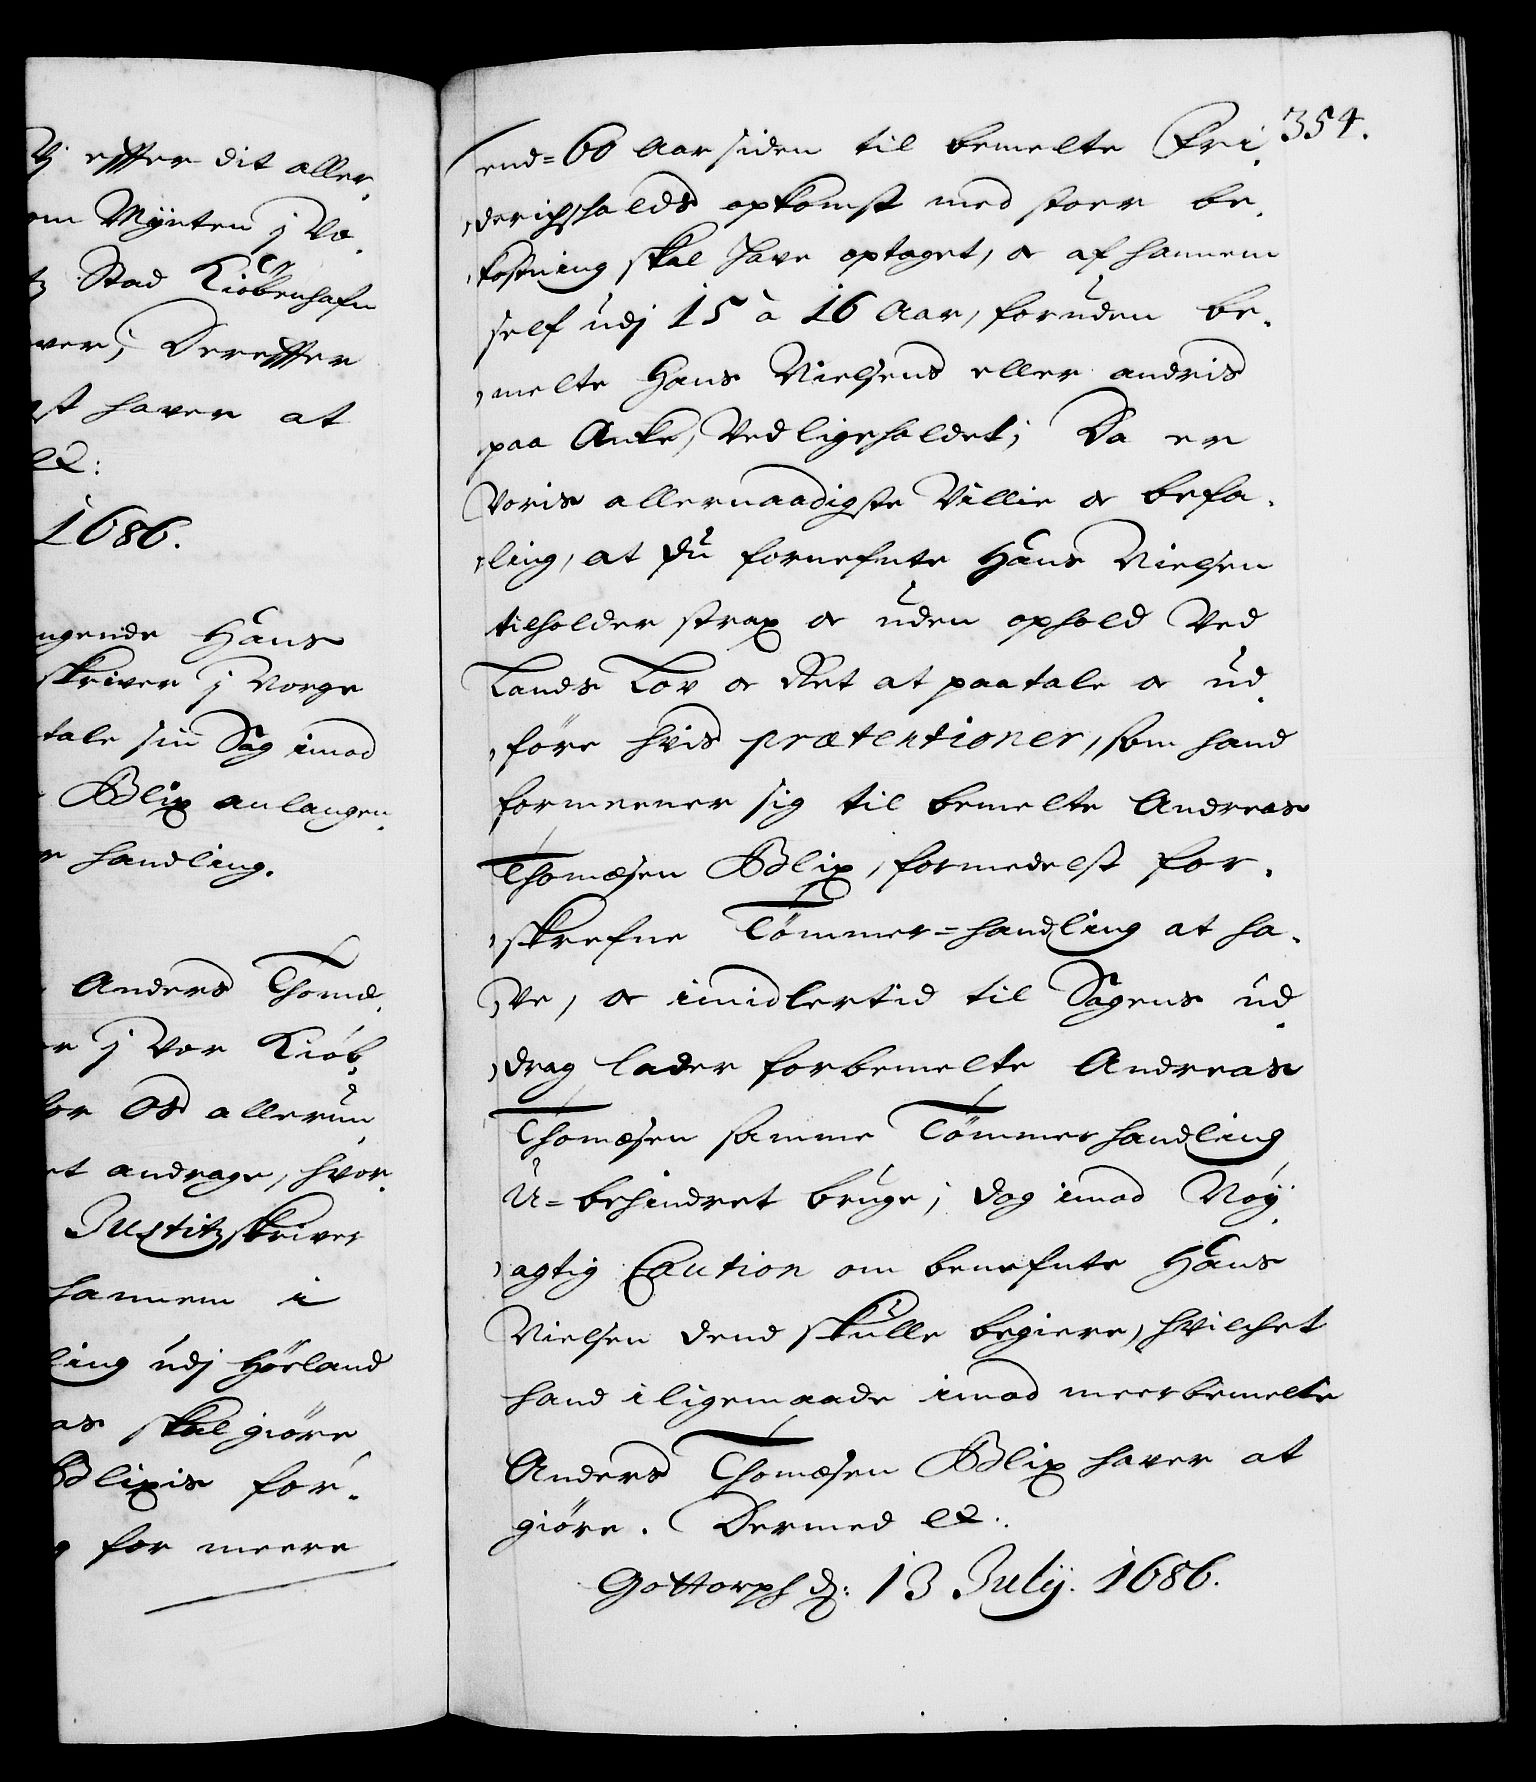 Vj effter dit aller
om Mÿnten j Vo
Stad Kiöbenhafn
ver; Dereffter
st haver at
ec:
1686.
ngende Hans
skriver j Norge
tale sin Sag imod
Blix anlangen
handling.
Anders Thomæ
j vor Kiöb
for os allerun
et andrage, hvor
Justitzskriver
hannem i
ling udj Hörland
as skal giöre
Blixis for
for meere
354.
end= 60 Aar siden til bemelte Fri
derichshalds opkomst med stoer be
kostning skal have optaget, oc af hannem
self udj 15 à 16 Aar, foruden be
melte Hans Nielsens eller andris
paa Anke, vedligeholdet; Da er
voris allernaadigste Villie oc befa
ling, at du fornefnte Hans Nielsen
tilholder strax oc uden ophold ved
Lands Lov oc Ret at paatale oc ud
före hvis prætentioner, som hand
formeener sig til bemelte Andreas
Thomæsen Blix, formedelst for
skrefne Tömmer=handling at ha
ve, oc imidlertid til Sagens ud
drag lader forbemelte Andreas
Thomæsen samme Tömmerhandling
U=behindret bruge; dog imod Nöÿ
agtig Caution om benefnte Hans
Nielsen dend skulle begiere, hvilchet
hand i ligemaade imod meerbemelte
Anders Thomæsen Blix haver at
giöre. Dermed ec.
Gottorph d: 13 Julij. 1686.